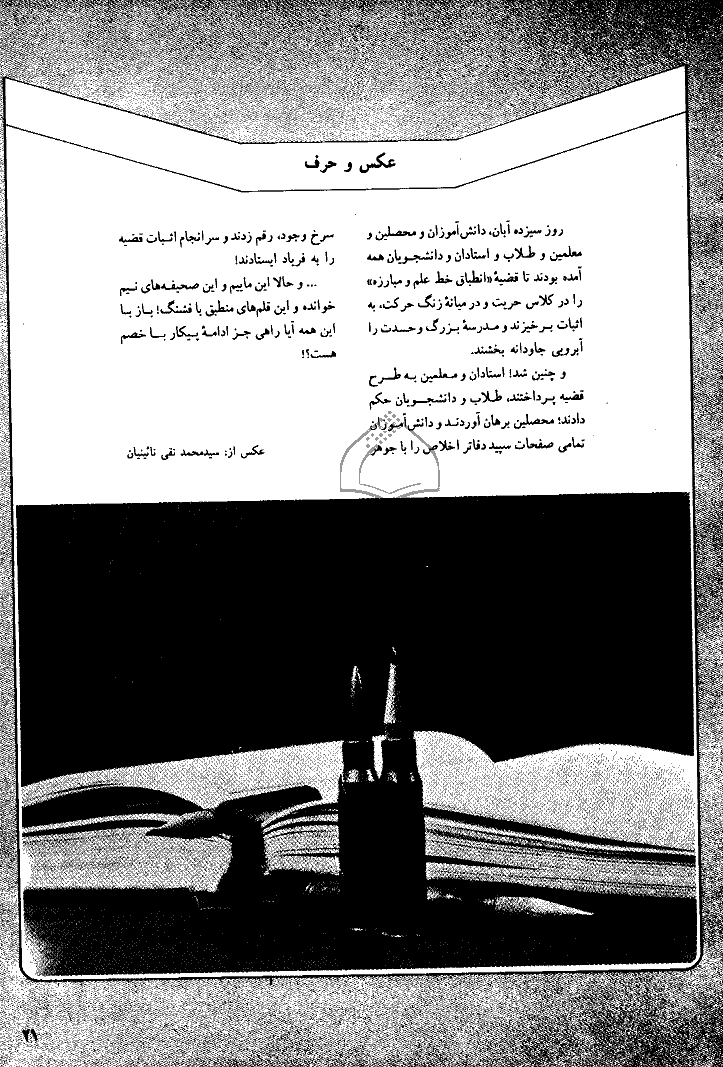 عکس و حرف
روز سیزده آبان، دانش‌آموزان و محصلین و
معلمین و طلاب و استادان و دانشجویان همه
آمده بودند تا قضیهٔ «انطباق خط علم و مبارزه»
را در کلاس حریت و در میانهٔ زنگ حرکت، به
اثبات برخیزند و مدرسهٔ بزرگ وحدت را
آبرویی جاودانه بخشند.
و چنین شد! استادان و معلمین به طرح
قضیه پرداختند، طلاب و دانشجویان حکم
دادند؛ محصلین برهان آوردند و دانش‌آموزان
تمامی صفحات سپید دفاتر اخلاص را با جوهر
سرخ وجود، رقم زدند و سرانجام اثبات قضیه
را به فریاد ایستادند!
... و حالا این ماییم و این صحیفه‌های نیم
خوانده و این قلم‌های منطبق با فشنگ! باز با
این همه آیا راهی جز ادامهٔ پیکار با خصم
هست؟!
عکس از: سیدمحمد نقی نائینیان
۳۱